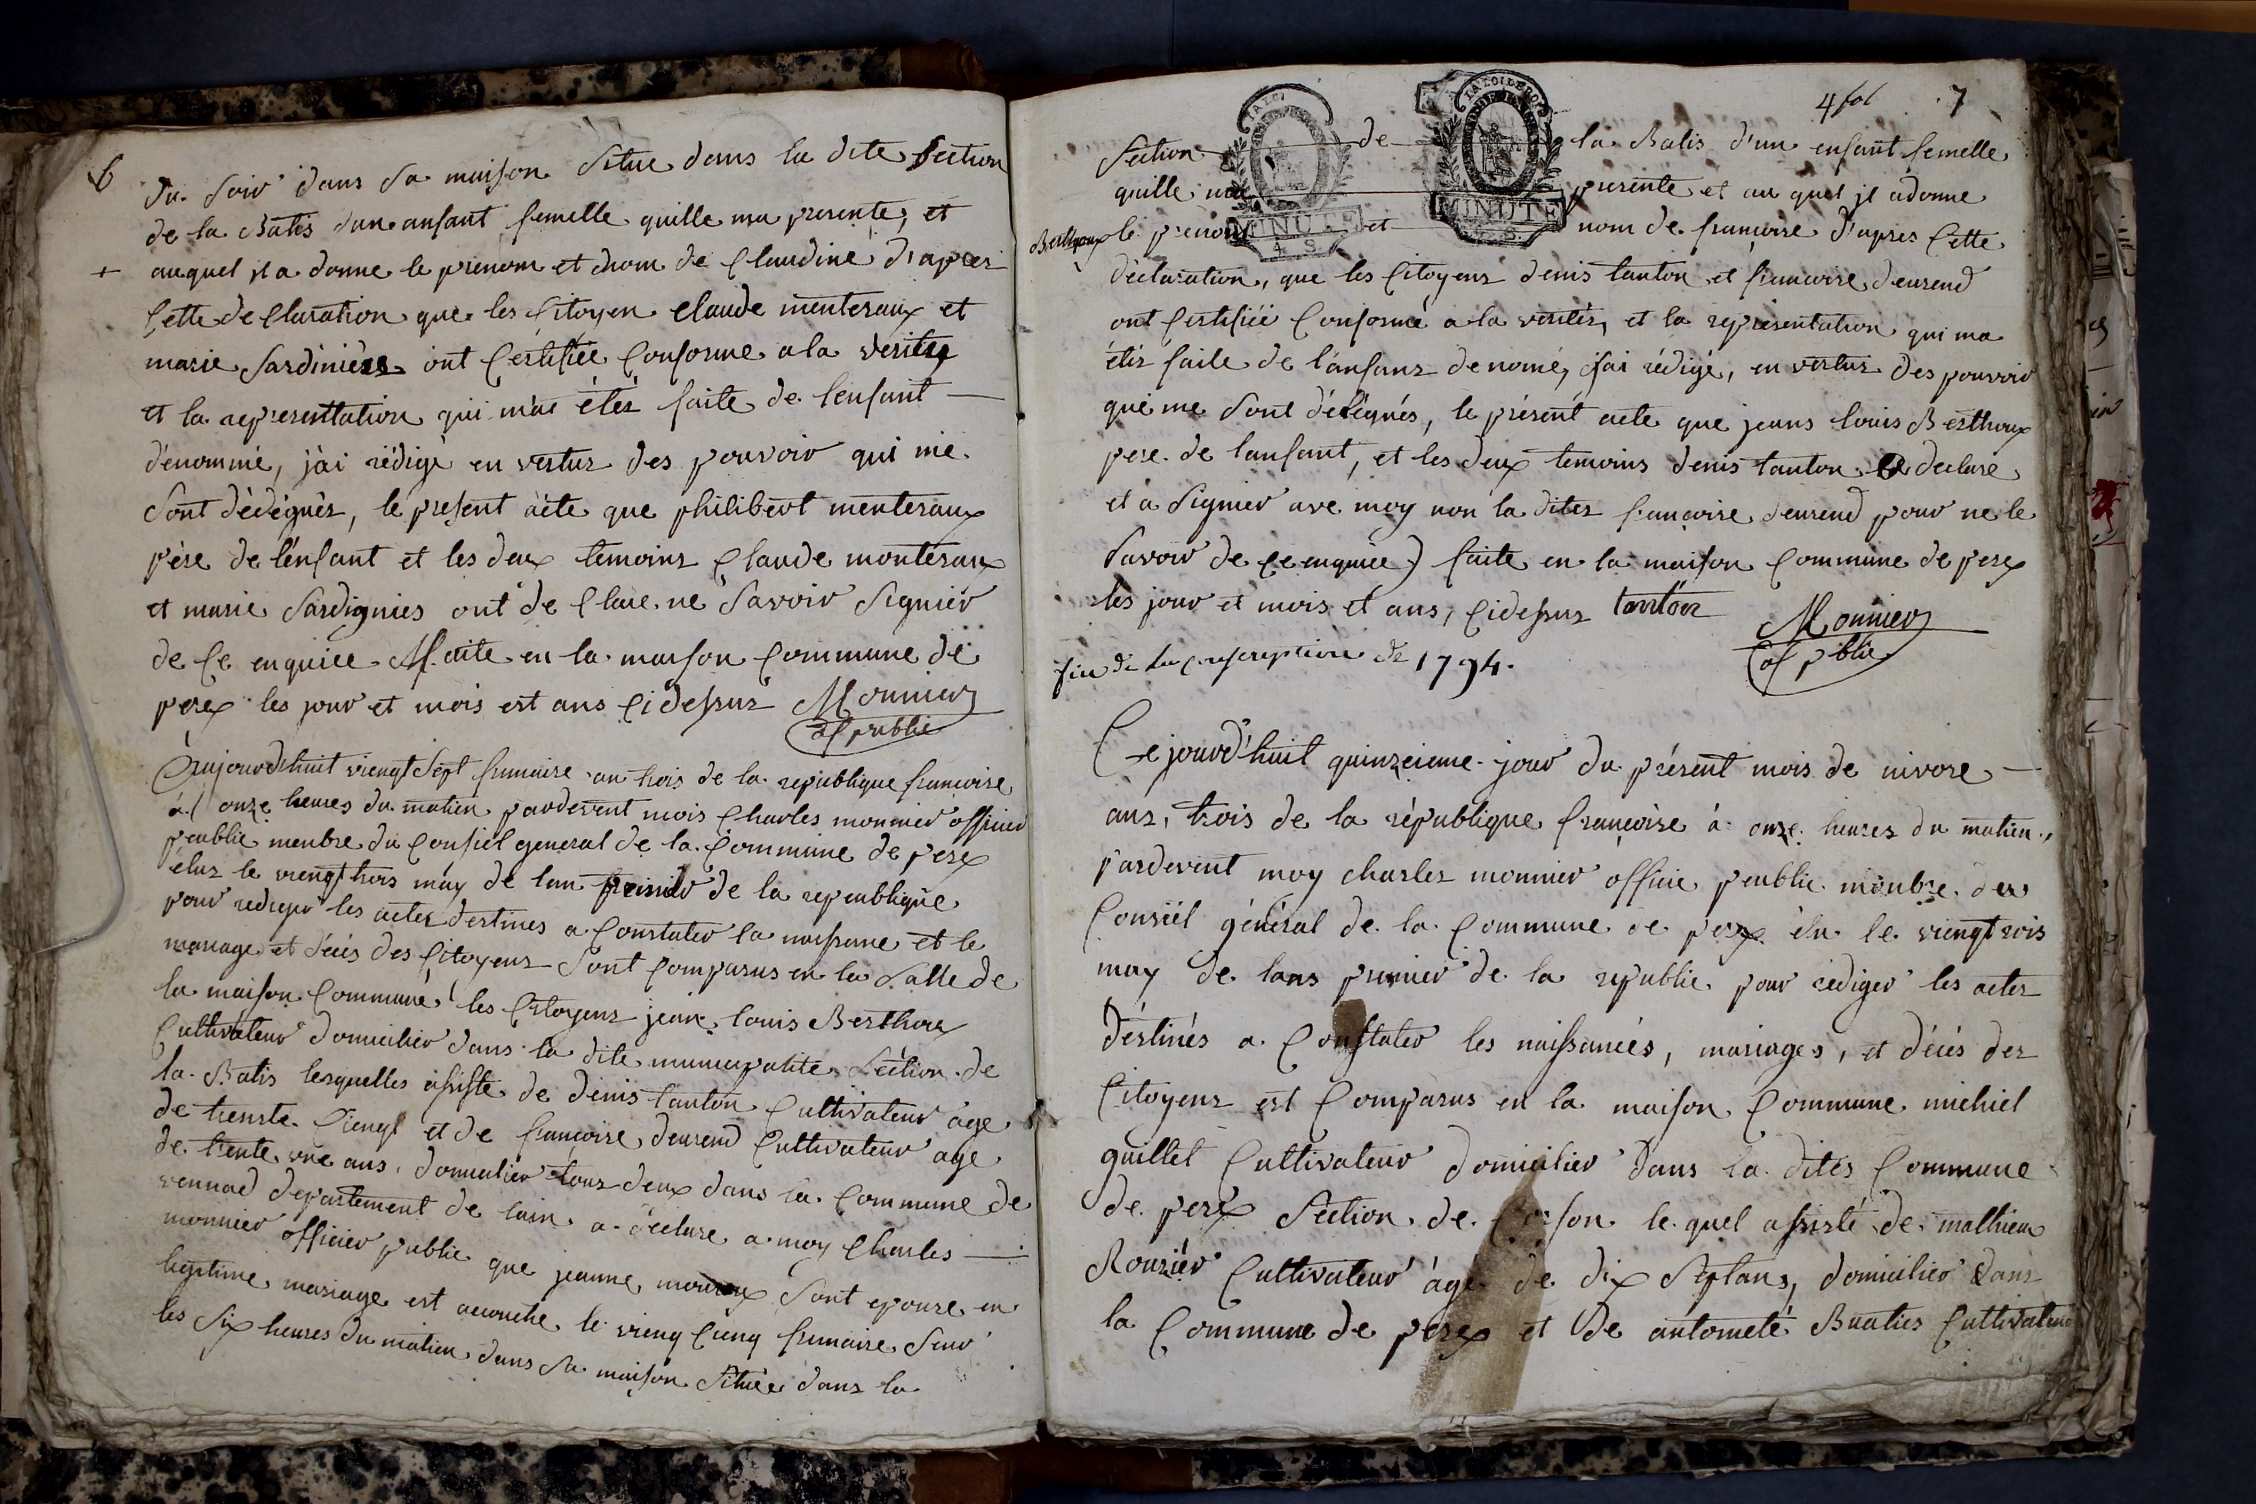 6
du soir dans sa maison situe dans la dite section
de la Batis dun anfant femelle quille ma presente, et
+ auquel il a donne le prenom et nom de Claudine d'aprer
Cette declaration que les Citoyen claude monteraux et
marie Sardinière ont Certifiée Conforme a la verites
et la representtation qui m'as étés faite de lenfant —
dénommé, jài rédigé en vertus des pouvoir qui me
sont dèdégués, le present àcte que philibert monteraux
père de l'enfant et les deux temoins Claude monteraux
et marie Sardignies ont de Clare ne Savoir Signiér
de Ce enquiée faite en la maison Commune de
perex les jour et mois est ans Cidessus Monnier
of public
Aujourd'huit viengt sept frimaire an trois de la republique francoise
à onze heures du matien pardevent mois Charles monnier officier
peublic menbre du Consiel general de la Commune de perex
élus le viengt trois may de lan premier de la repeublique
pour rediger les actes destines a Constater la naissance et le
mariage et décés des Citoyens sont Comparus en la salle de
la maison Commune les Citoyens jean louis Berthoux
Cultivateur domicilier dans la dite municipalite Séction de
la Batis lesquelles assiste de denis tanton Cultivateur àge
de trente Cienq et de francoise deurend Cultivateur age
de trente une ans, domicilier tous deux dans la Commune de
vonnad departement de lain a déclare a moy Charles —
monnier officier public que jeanne moiroux sont epouze en
legitime mariage est acouche le vieng Cienq frimaire seur
les six heures du matien dans sa maison situèe dans la
4 fol 7
LA LOI
LA LOI
Section de la Batis d'un enfant femelle
quille ma presente et au quel il adonne
Berthoux le prenom et nom de francoise d'apres Cette
MINUTE
MINUTE
4 S
déclaration, que les Citoyens denis tanton et francoise deurend
ont Certifiée Conforme a la verités, et la représentation qui ma
étés faite de lénfans denomé, jai rédigé, en vertus des pouvoir
qui me sont délégués, le présent acte que jeans louis Berthoux
pere de lanfant, et les deux temoins denis tanton declare
et a Signier ave moy non la dites francoise deurend pour ne le
Savoir de ce enquiée) faite en la maison Commune de perex
les jour et mois et ans, Cidessus tanton Monnier
of public
fin de la conscription de 1794.
Cejourd'huit quinzeieme jour du présent mois de nivose —
ans, trois de la république francoise à onze heures du matien,
pardevent moy charles monnier officie peublic menbre du
Conseil général de la Commune de perex élu le viengt rois
may de lans premier de la republic pour rédiger les actes
déstinés a Constater les naissances, mariages, et décés des
Citoyens est Comparus en la maison Commune michiel
guillet Cultivateur domicilier dans la dités Commune
de perex Section de le quel assisté de mathieu
Rouziér Cultivateur àgé de dix Septans, domicilier dans
la Commune de perex et de antometé Buaties Cultivateur